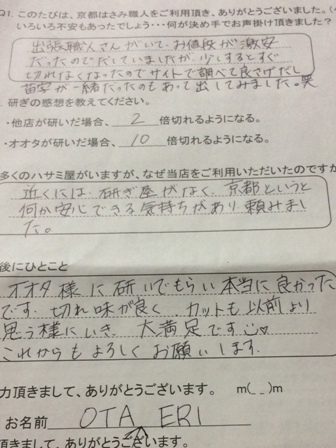 Q1. このたびは、京都はさみ職人をご利用頂き、ありがとうございました。(
いろいろ不安もあったでしょう・・・何が決め手でお声掛け頂けました？
出張職人さんがいて、お値段が激安
だったのでだしていましたが、少しするとすぐ
切れなくなったのでサイトで調べて良さげだし
苗字が一緒だったのもあって出してみました。笑
研ぎの感想を教えてください。
・他店が研いだ場合、2倍切れるようになる。
・オオタが研いだ場合、10倍切れるようになる。
多くのハサミ屋がいますが、なぜ当店をご利用いただいたのですか
近くには研ぎ屋がなく、京都というと
何か安心できる気持ちがあり頼みまし
た。
後にひとこと
オオタ様に研いでもらい本当に良かった
です。切れ味が良く、カットも以前より
思う様にいき、大満足です
これからもよろしくお願いします。
力頂きまして、ありがとうございます。 m(_ _)m
お名前 OTA ERI
頂きまして、ありがとうございます。